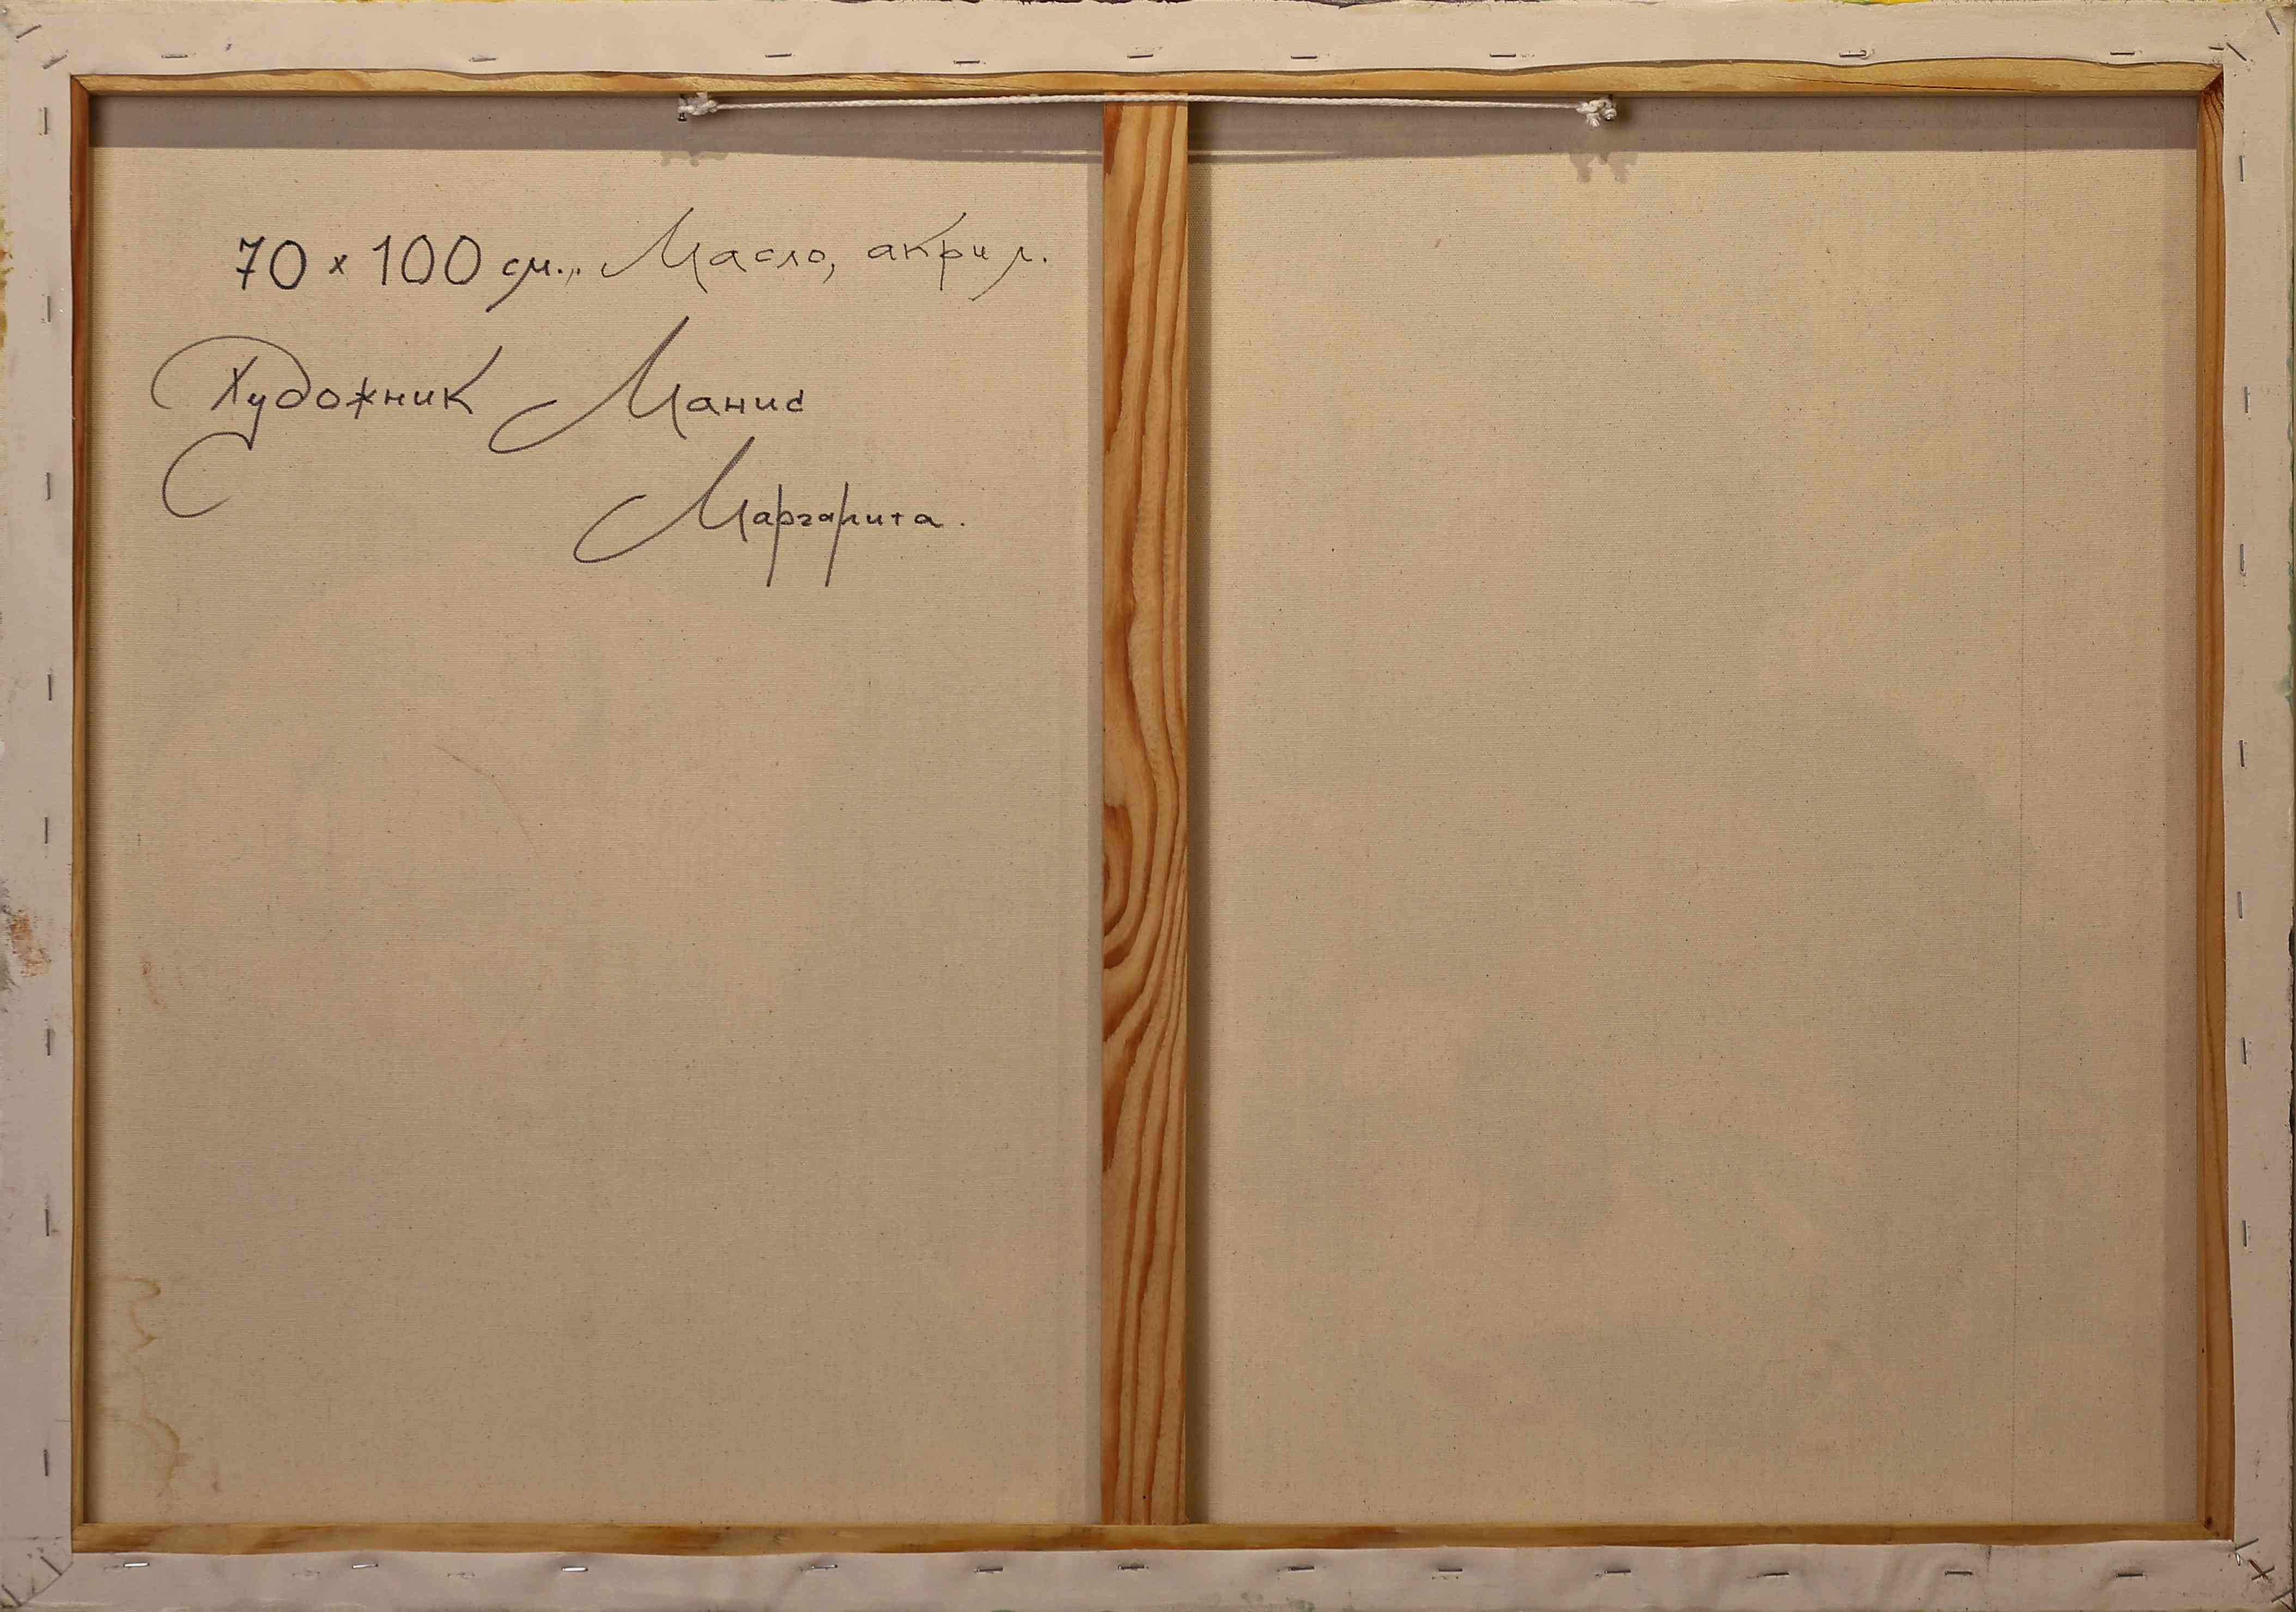 70 x 100 см., Масло, акрил.
Художник Манис
Маргарита.